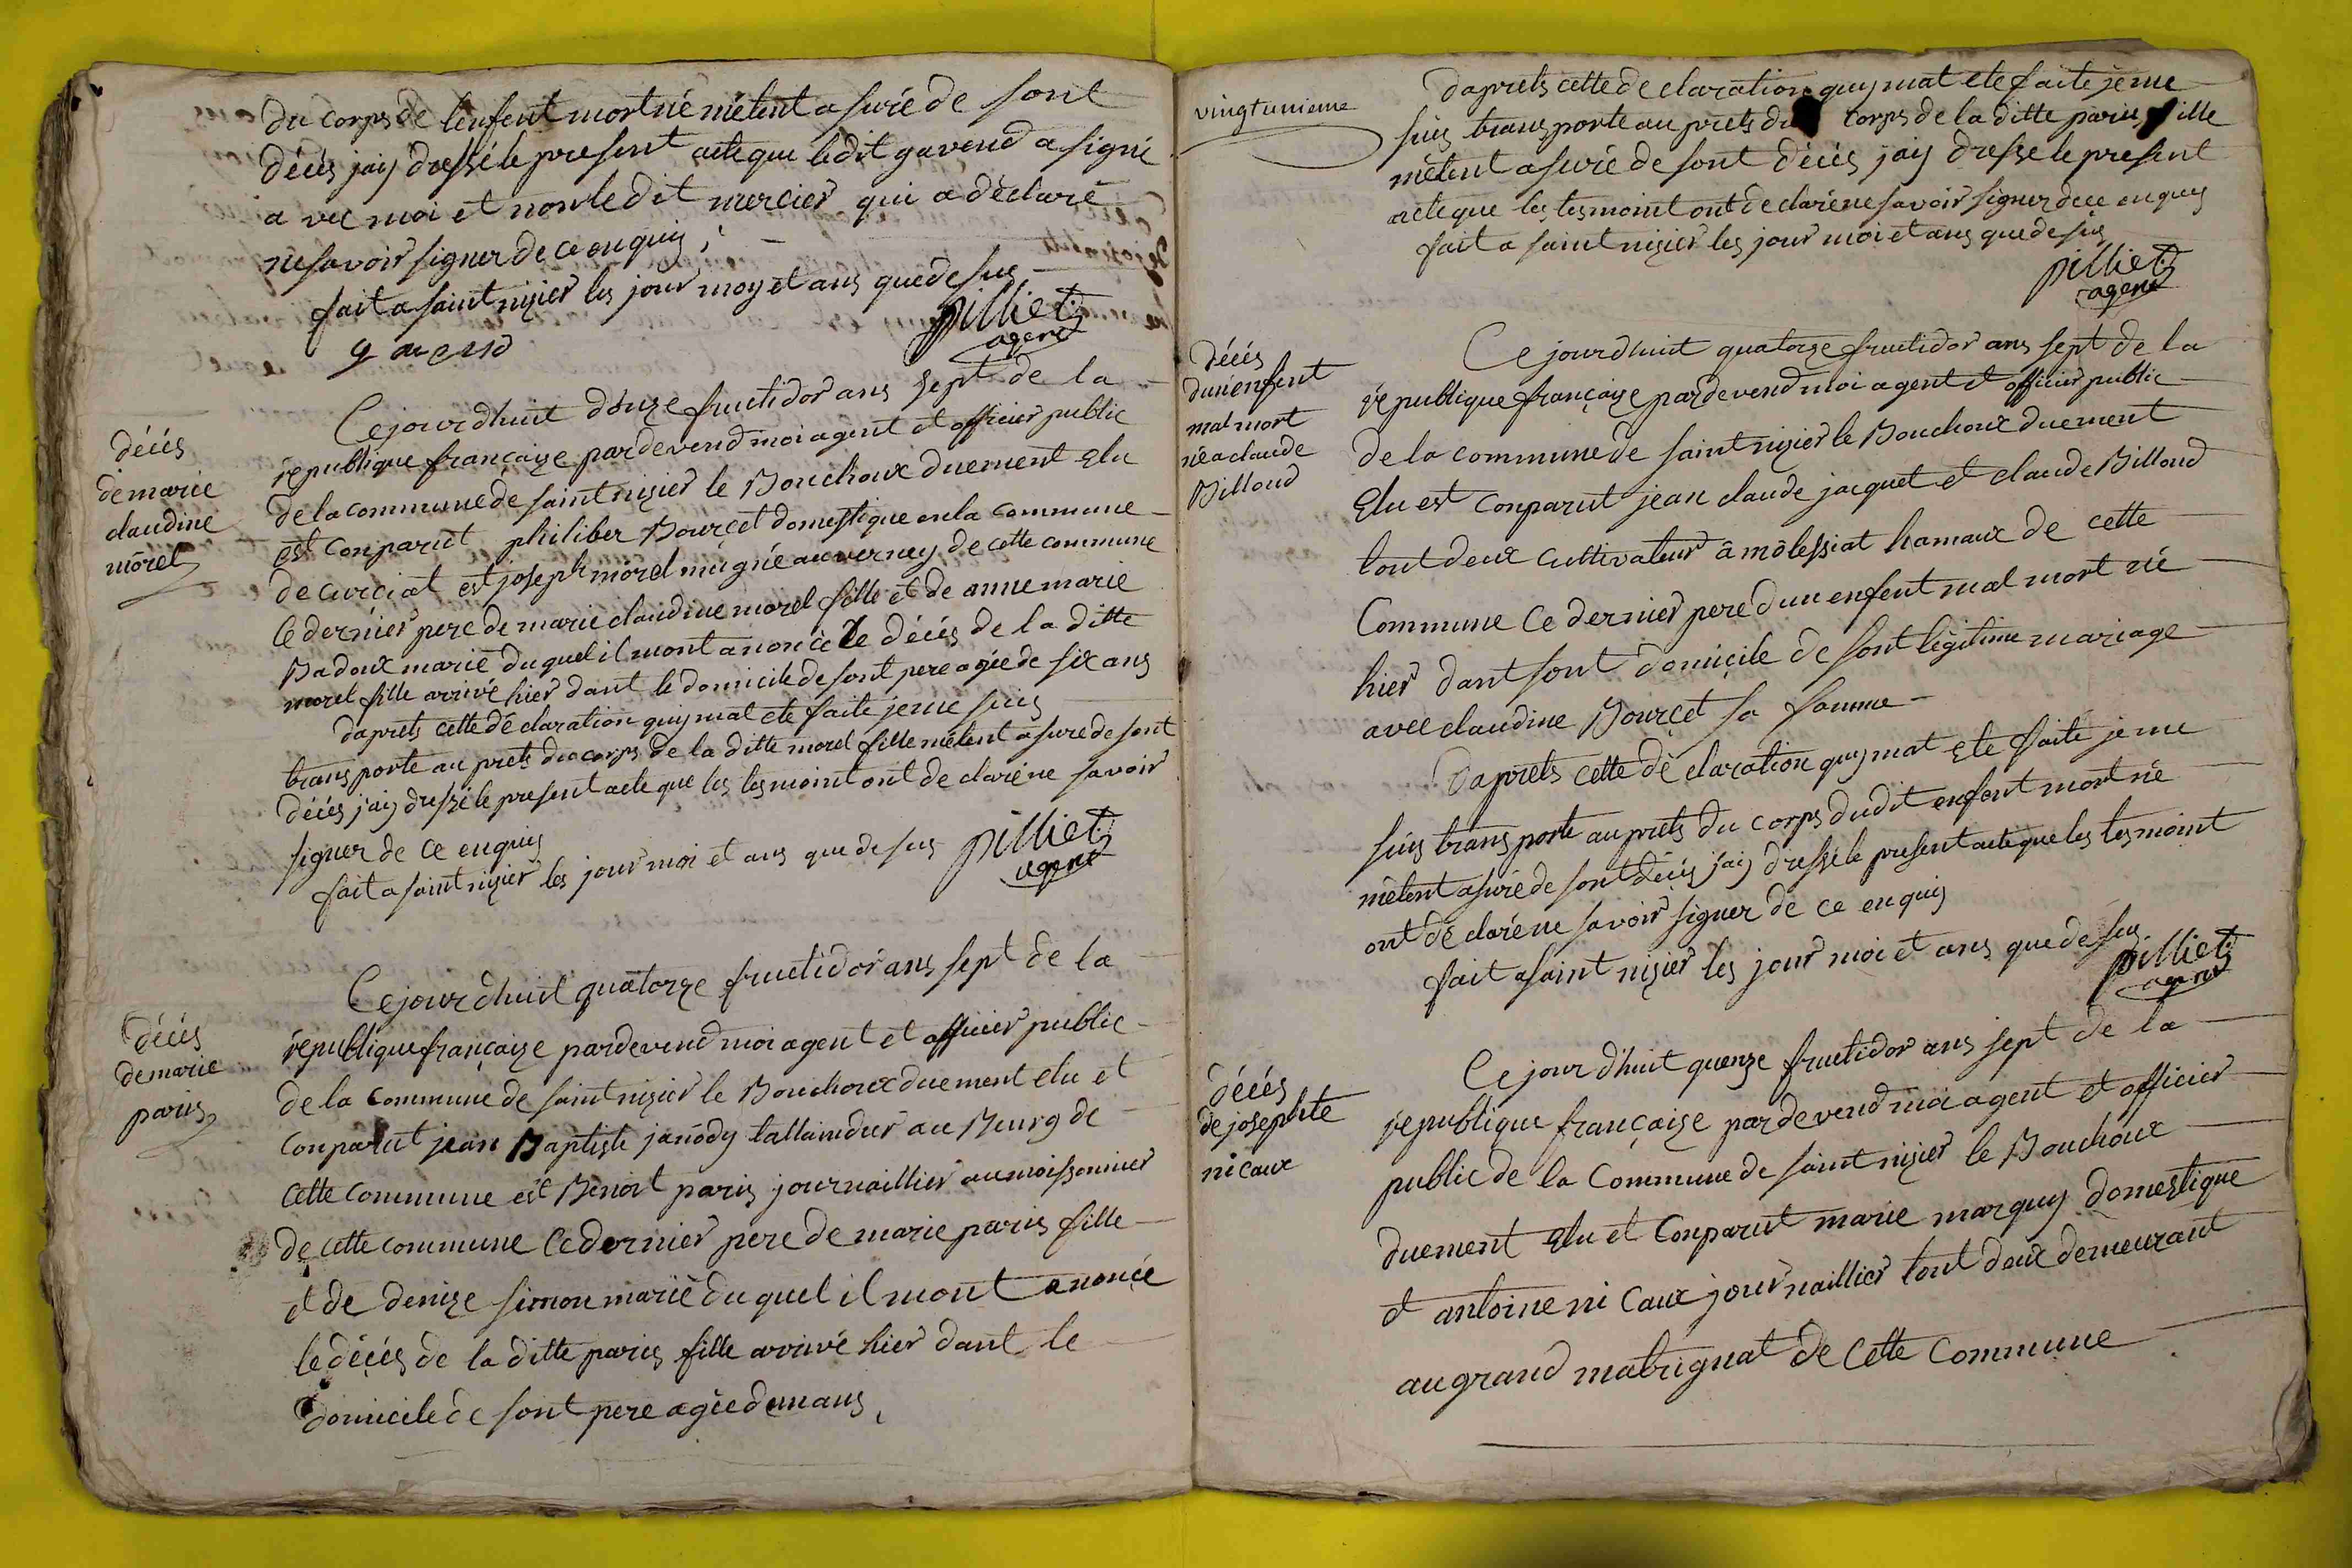 du corps de lenfent mort né métent asuré de sont
décés jaij dressé le present acte que ledit gavend a signé
a vec moi et non ledit mercier qui a déclaré
ne savoir signer de ce enquis ;
fait a saint nizier les jour moy et ans que desus
pilliet
agent
gavend
décés
de marie
claudine
môrel
Ce jourdhuit douze fructidor ans sept de la
république françaize pardevend moi agent et officier public
de la commune de saint nizier le Bouchoux duement elu
est conparut philiber Bourcet domestique en la commune
de curciat est joseph môrel mugnié au verney de cette commune
ce dernier pere de marie claudine morel fille et de anne marie
Badoux marié duquel il mont anoncé le décés de la ditte
morel fille arrivé hier dant le domicile de sont pere agée de six ans
daprets cette déclaration quij mat ete faite je me suis
trans porte au prets du corps de la ditte morel fille métent asure de sont
décés jaij dressé le present acte que les tesmoint ont de claré ne savoir
signer de ce enquis
fait a saint nizier les jour moi et ans que desus
pilliet
agent
décés
de marie
paris
Ce jourdhuit quatorze fructidor ans sept de la
république françaize pardevend moi agent et officier public
de la commune de saint nizier le Bouchoux duement elu et
conparut jean Baptiste janôdy tallaindier au Bourg de
cette commune est Benoit paris journaillier au moissonnier
de cette commune ce dernier pere de marie paris fille
et de denize simon marié duquel il mont anoncé
le décés de la ditte paris fille arrivé hier dant le
domicile de sont pere agée dun ans,
vingtunieme
daprets cette de claration quij mat ete faite je me
suis trans porte au prets du corps de la ditte paris fille
métent asuré de sont décés jaij dresse le present
acte que les tesmoint ont declaré ne savoir signer de ce enquis
fait a saint nizier les jour moi et ans que desus
pilliet
agent
décés
dun enfent
mal mort
né a claude
Billoud
Ce jourdhuit quatorze fructidor ans sept de la
république françaize pardevend moi agent et officier public
de la commune de saint nizier le Bouchoux duement
elu est conparut jean claude jacquet et claude Billoud
tout deux cultivateur â môlessiat hamaux de cette
Commune Ce dernier pere dun enfent mal mort né
hier dant sont domicile de sont légitime mariage
avec claudine Bourcet sa famme
Daprets cette dé claration quij mat ete faite je me
suis trans porte au prets du corps dudit enfent mort né
métent asuré de sont décés jaij dressé le present acte que les tesmoint
ont dé claré ne savoir signer de ce enquis
fait a saint nizier les jour moi et ans que desus
pilliet
agent
décés
de josephte
nicaux
Ce jour dhuit quenze fructidor ans sept de la
republique françaize pardevend moi agent et officier
public de la Commune de saint nizier le Bouchoux
duement elu et Conparut marie marquis domestique
et antoine ni Caux journaillier tout deux demeurant
au grand matrignat de Cette Commune